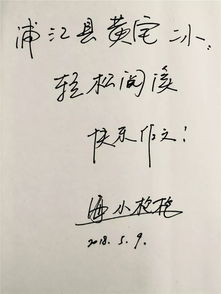 浦江县黄宅二小：
轻松阅读
快乐作文！
海小枪枪
2018.5.9.